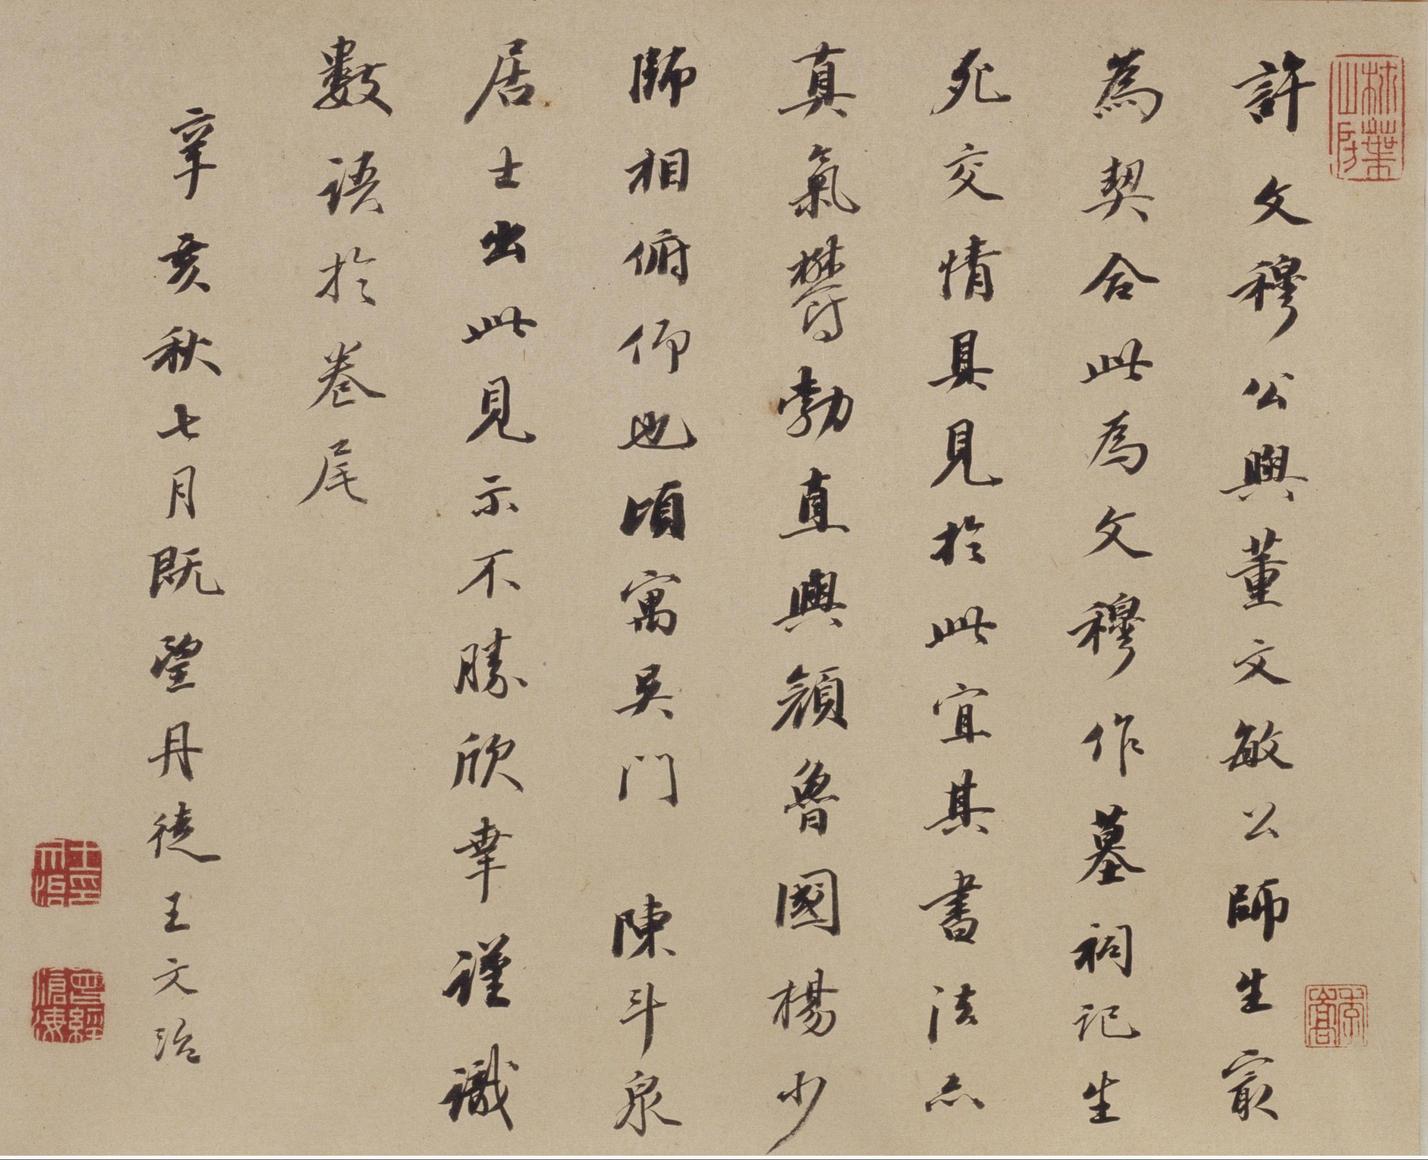 柿葉山房
許文穆公與董文敏公師生最
為契合此為文穆作墓祠記生
死交情具見於此宜其書法亦
真氣鬱勃直與顏魯國楊少
師相俯仰也頃寓吳門 陳斗泉
居士出此見示不勝欣幸謹識
數語於卷尾
辛亥秋七月既望丹徒王文治
王文治印
曾經滄海